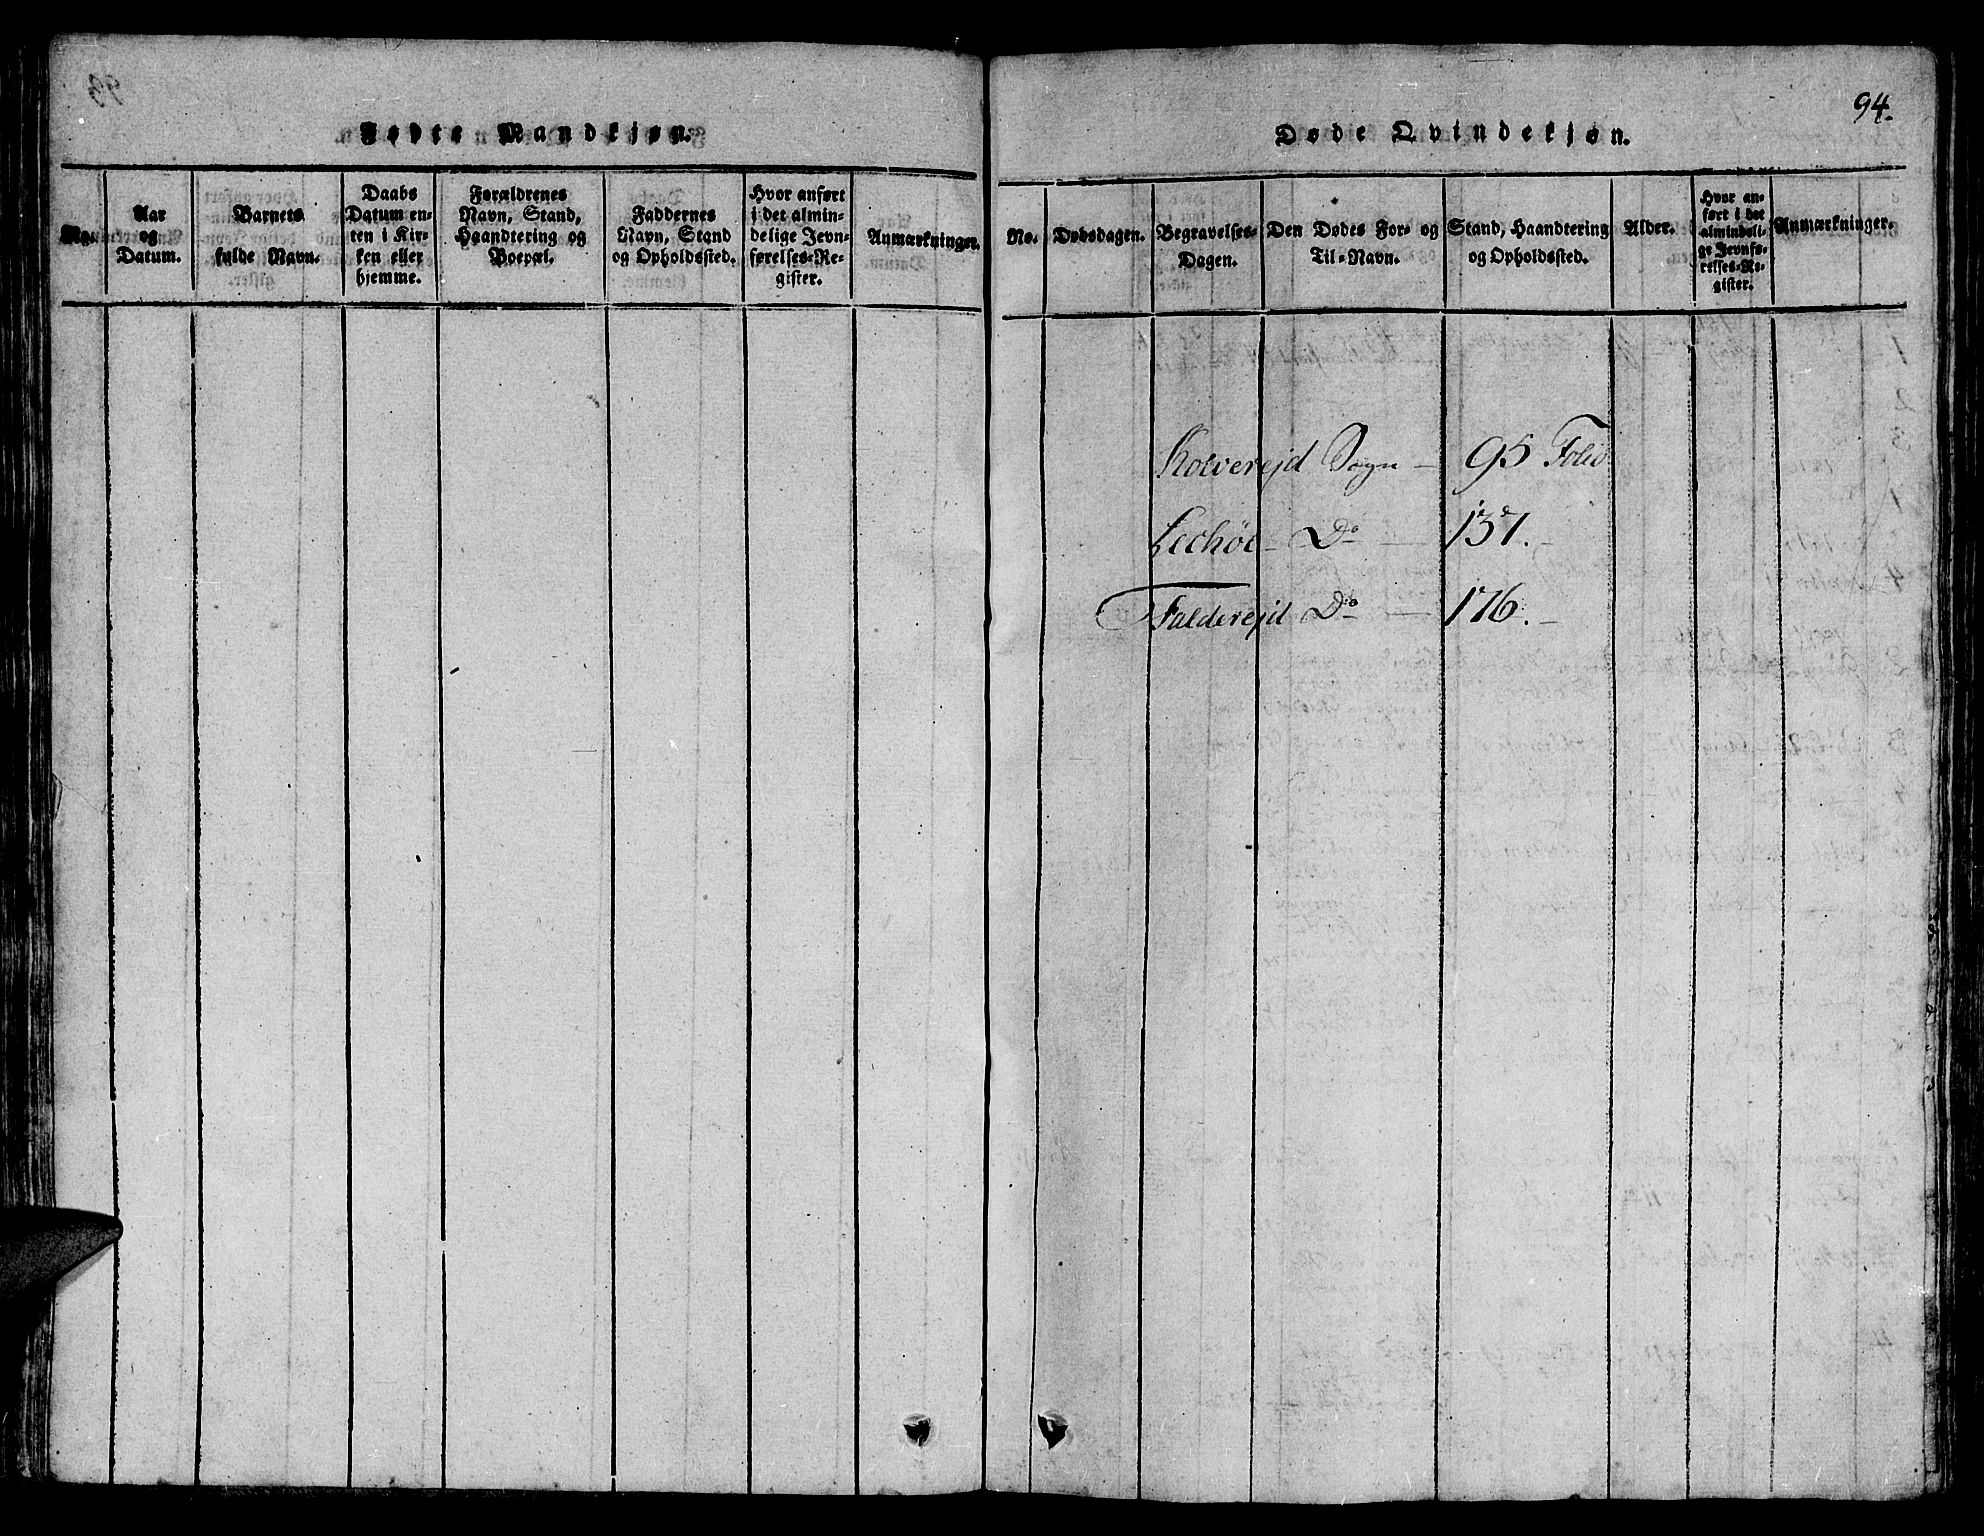 Fødte Mandkjøn.
No.
Aar
og
Datum.
Barnets
fulde Navn.
Daabs
Datum en-
ten i Kir-
ken eller
hjemme.
Forældrenes
Navn, Stand,
Haandtering og
Boepæl.
Faddernes
Navn, Stand
og Opholdssted.
Hvor anført
i det almin-
delige Jevn-
førelses-Re-
gister.
Anmærkninger.
94.
Døde Qvindekjøn.
No.
Dødsdagen.
Begravelses-
Dagen.
Den Dødes For- og
Til-Navn.
Stand, Haandtering
og Opholdssted.
Alder.
Hvor an-
ført i det
almindeli-
ge Jevnfø-
relses-Re-
gister.
Anmærkninger.
Kolverejd Sogn — 95 Folio
Lechöe — Do — 137. —
Falderejd Do — 176. —